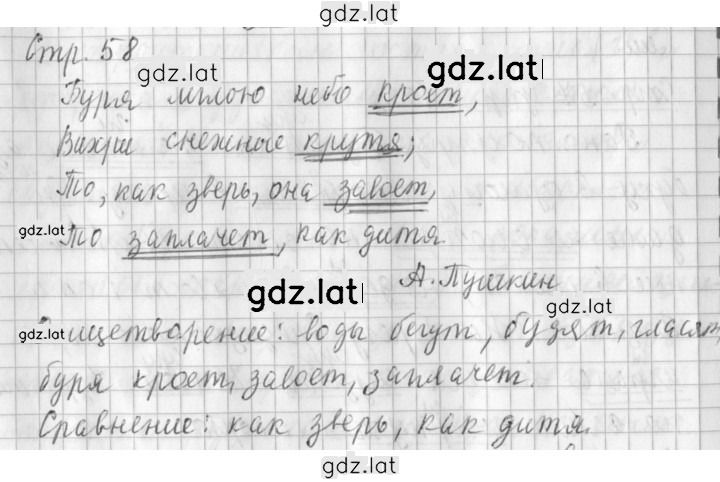 gdz.lat
Стр. 58
gdz.lat
gdz.lat
Буря мглою небо кроет,
Вихри снежные крутя;
То, как зверь, она завоет,
gdz.lat
То заплачет, как дитя.
А. Пушкин
gdz.lat
gdz.lat
gdz.lat
Олицетворение: воды бегут, будят, гласят,
буря кроет, завоет, заплачет.
Сравнение: как зверь, как дитя.
gdz.lat